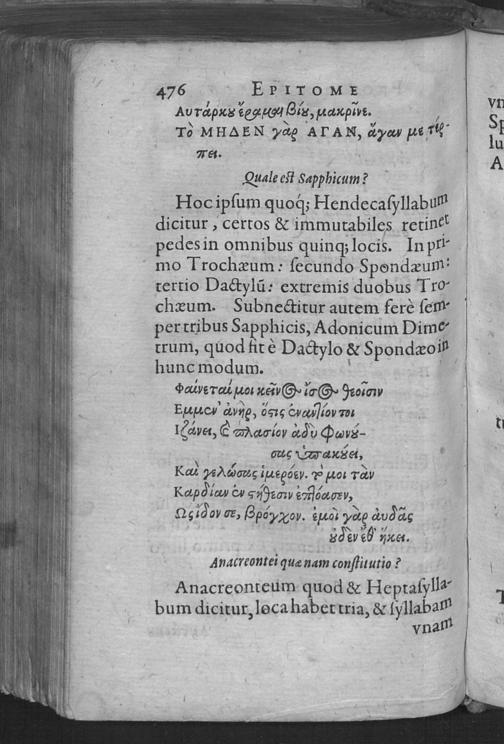 476 EPITOME
Αυτάρκȣ ἔραμαι βίȣ, μακρῖνε.
Τὸ ΜΗΔΕΝ γὰρ ΑΓΑΝ, ἄγαν με τέρ-
πει.
Quale est Sapphicum?
Hoc ipsum quoq; Hendecaſyllabum
dicitur, certos & immutabiles retinet
pedes in omnibus quinq; locis. In pri-
mo Trochæum: ſecundo Spondæum:
tertio Dactylũ: extremis duobus Tro-
chæum. Subnectitur autem ferè ſem-
per tribus Sapphicis, Adonicum Dime-
trum, quod fit è Dactylo & Spondæo in
hunc modum.
Φαίνεταί μοι κεῖνος ἴσος θεοῖσιν
Εμμεν' ἀνὴρ, ὅςις ἐναντίον τοι
Ιζάνει, ϗ πλασίον ἁδὺ φωνȣ́-
σας ὑπακȣ́ει,
Καὶ γελώσας ἱμερόεν. μοι τὰν
Καρδίαν ἐν ςήθεσιν ἐπλόασεν,
Ως ἶδον σε, βρόγχον. ἐμοὶ γὰρ αυδᾶς
ȣ̓δὲν ἔθ' ἥκει.
Anacreontei quæ nam conſtitutio?
Anacreonteum quod & Heptaſylla-
bum dicitur, loca habet tria, & ſyllabam
vnam
vn
Sp
lu
A